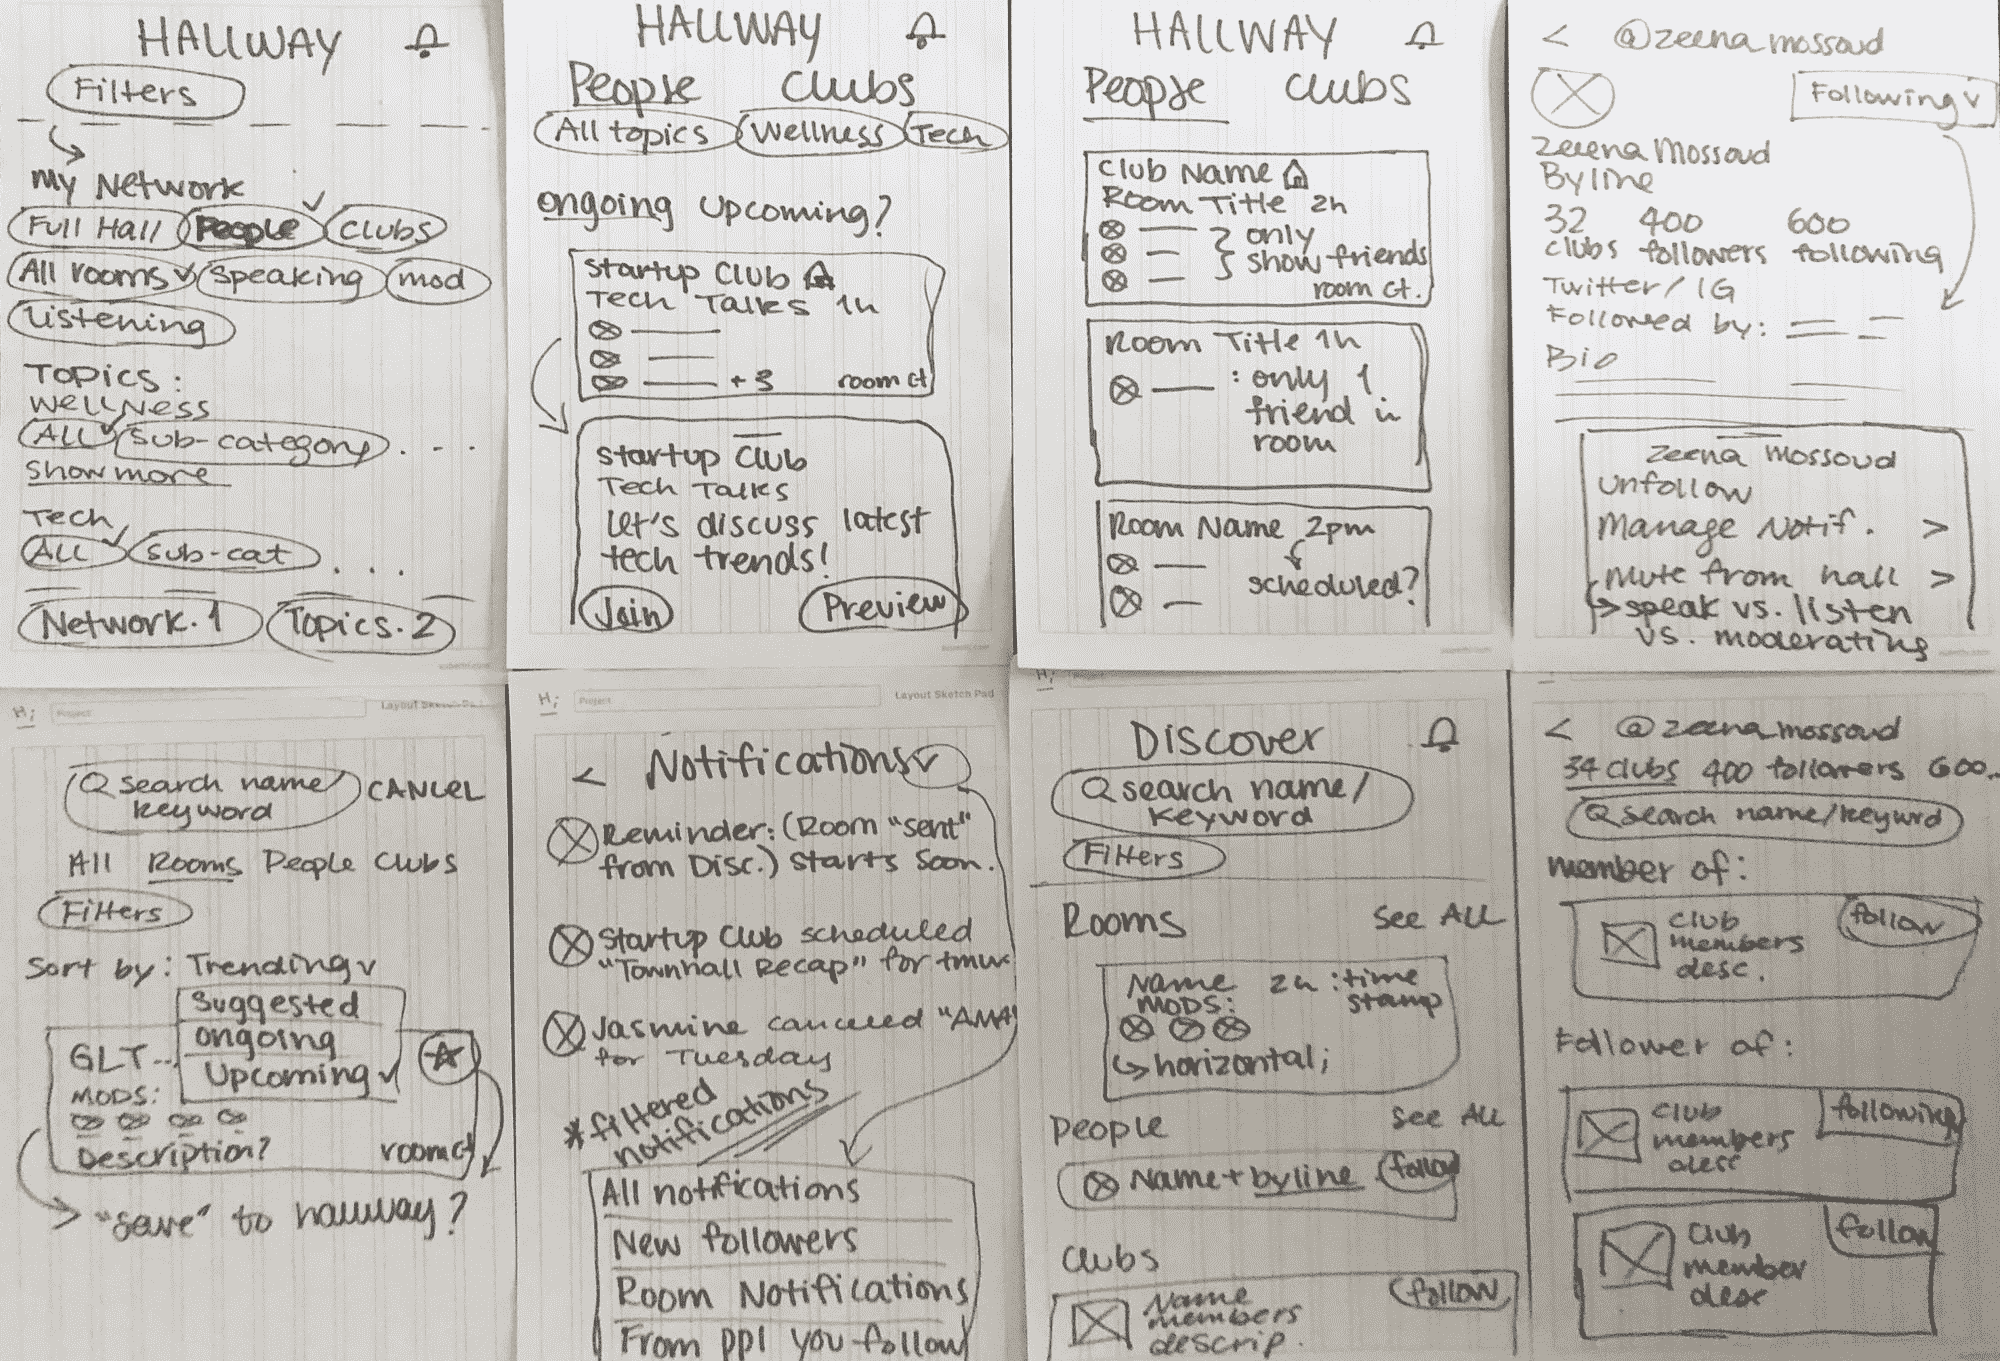 HALLWAY
Filters
My Network
Full Hall People Clubs
All rooms speaking mod
Listening
Topics:
Wellness
ALL sub-category . . .
show more
Tech
ALL sub-cat . . .
Network. 1 Topics. 2
HALLWAY
People Clubs
All topics Wellness Tech
ongoing upcoming?
startup Club
Tech Talks 1h
+3 room ct
startup Club
Tech Talks
let's discuss latest
tech trends!
Join Preview
HALLWAY
People Clubs
Club Name
Room Title 2h
only
show friends
room ct.
Room Title 1h
: only 1
friend in
room
Room Name 2pm
scheduled?
< @zeena_mossoud
Following v
Zeena Mossoud
Byline
32 400 600
clubs followers following
Twitter/IG
Followed by:
Bio
zeena mossoud
unfollow
Manage Notif. >
Mute from hall >
speak vs. listen
vs. moderating
Hi Project Layout Sketch Pad
search name/
keyword
CANCEL
All Rooms People Clubs
Filters
Sort by: Trending v
Suggested
ongoing
Upcoming
GLT...
MODS:
Description? room ct
"save" to hallway?
Hi Project Layout Sketch Pad
< Notifications v
Reminder: (Room "sent"
from Disc.) starts soon.
Startup Club scheduled
"Townhall Recap" for tmw
Jasmine canceled "AMA"
for Tuesday
*filtered
notifications
All notifications
New followers
Room Notifications
From ppl you follow
Hi
Discover
search name/
keyword
Filters
Rooms See ALL
Name 2h : time
stamp
MODS:
horizontal;
People See ALL
Name + byline follow
Clubs
Name
members
descrip.
follow
< @zeena_mossoud
34 clubs 400 followers 600..
search name/keywrd
member of:
club
members
desc.
follow
Follower of:
club
members
desc
following
club
member
desc
follow